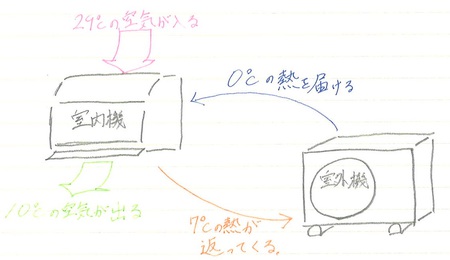 29℃の空気が入る
0℃の熱を届ける
室内機
室外機
10℃の空気が出る
7℃の熱が
返ってくる。